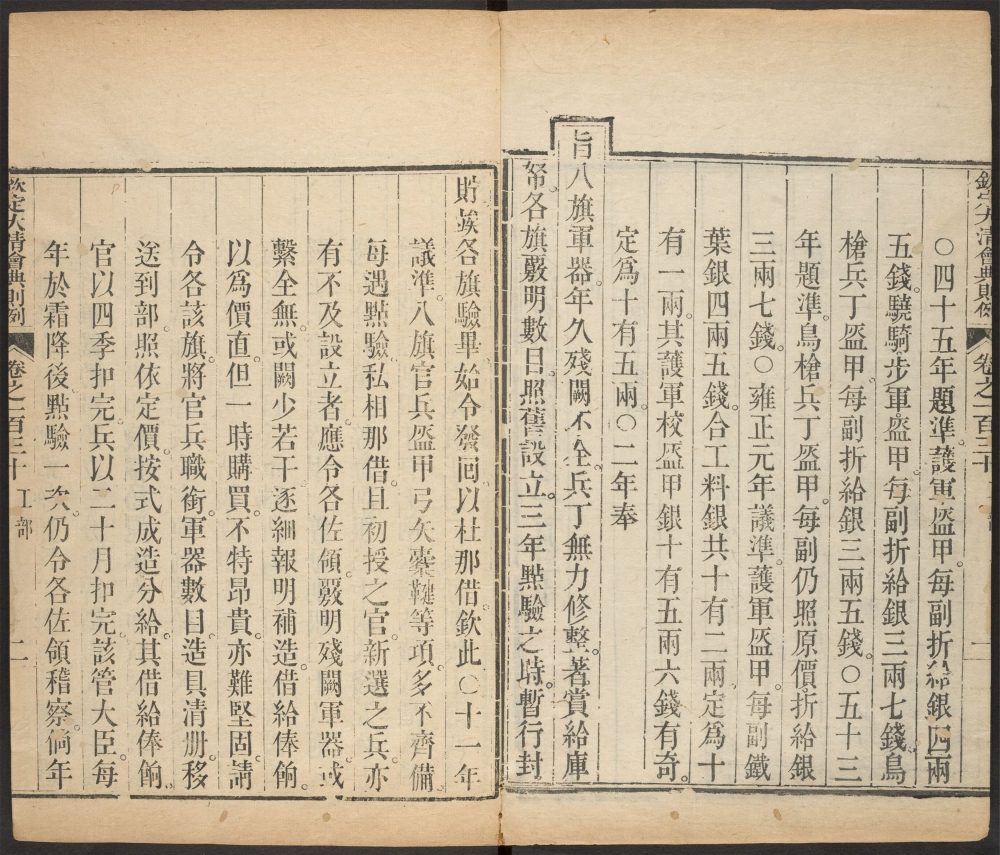 欽定大清會典則例 卷之一百三十
○四十五年題準護軍盔甲每副折給銀四兩
五錢驍騎步軍盔甲每副折給銀三兩七錢鳥
槍兵丁盔甲每副折給銀三兩五錢○五十三
年題準鳥槍兵丁盔甲每副仍照原價折給銀
三兩七錢○雍正元年議準護軍盔甲每副鐵
葉銀四兩五錢合工料銀共十有二兩定爲十
有一兩其護軍校盔甲銀十有五兩六錢有奇
定爲十有五兩○二年奉
旨八旗軍器年久殘闕不全兵丁無力修整著賞給庫
帑各旗覈明數目照舊設立三年點驗之時暫行封
貯俟各旗驗畢如令發囘以杜那借欽此○十一年
議準八旗官兵盔甲弓矢櫜鞬等項多不齊備
每遇點驗私相那借且初授之官新選之兵亦
有不及設立者應令各佐領覈明殘闕軍器或
繫全無或闕少若干逐細報明補造借給俸餉
以爲價直但一時購買不特昂貴亦難堅固請
令各該旗將官兵職銜軍器數目造具清册移
送到部照依定價按式成造分給其借給俸餉
官以四季扣完兵以二十月扣完該管大臣每
年於霜降後點驗一次仍令各佐領稽察倘年
欽定大清會典則例 卷之一百三十 工部 二